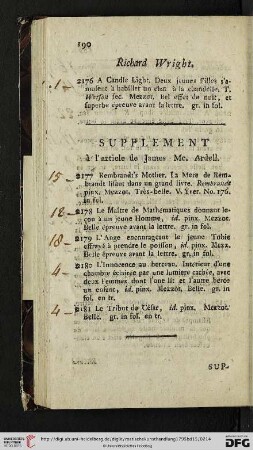 190
Richard Wright.
1 - 2176 A Candle Light. Deux jeunes filles s'a-
musent à habiller un chat à la chandelle. T.
Wilson fec. Mezzot. Bel effet de nuit, et
superbe épreuve avant la lettre. gr. in fol.
SUPPLEMENT
à l'article de James Mc. Ardell.
15 - 2177 Rembrandt's Mother. La Mere de Rem-
brandt lisant dans un grand livre. Rembrandt
pinx. Mezzot. Très-belle. V. Yver. No. 176.
in fol.
12 - 2178 Le Maître de Mathématiques donnant le-
çon à un jeune Homme, id. pinx. Mezzot.
Belle épreuve avant la lettre. gr. in fol.
18 - 2179 L'Ange encourageant le jeune Tobie
effrayé à prendre le poisson, id. pinx. Mezz.
Belle épreuve avant la lettre. gr. in fol.
4 - 2180 L'Innocence au berceau. Interieur d'une
chambre éclairée par une lumiere cachée, avec
deux femmes dont l'une lit et l'autre berce
un enfant, id. pinx. Mezzot. Belle. gr. in
fol. en tr.
4 - 2181 Le Tribut de César, id. pinx. Mezzot.
Belle. gr. in fol. en tr.
SUP-
UNIVERSITÄTS-
BIBLIOTHEK
HEIDELBERG
Gefördert durch die
DFG